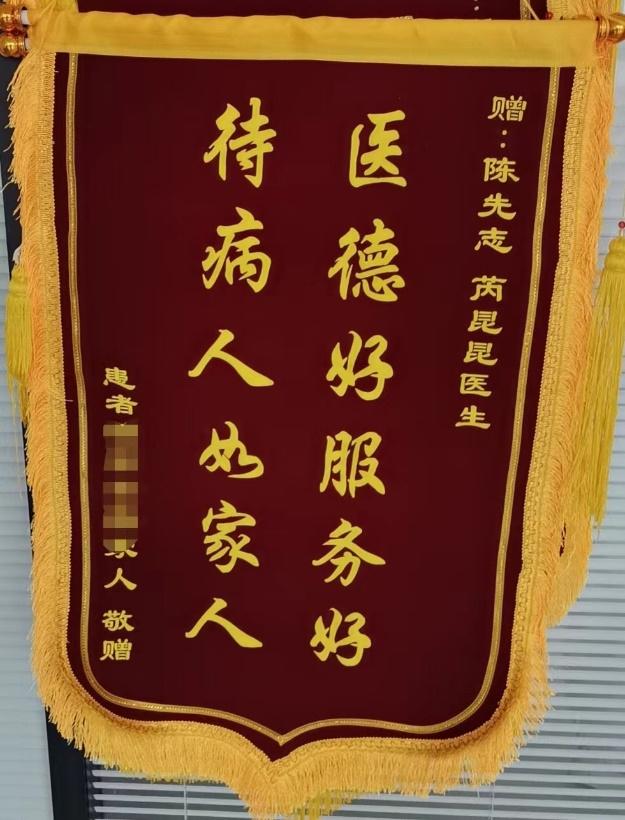 赠：陈先志 芮昆昆医生
医德好服务好
待病人如家人
患者
家人 敬赠